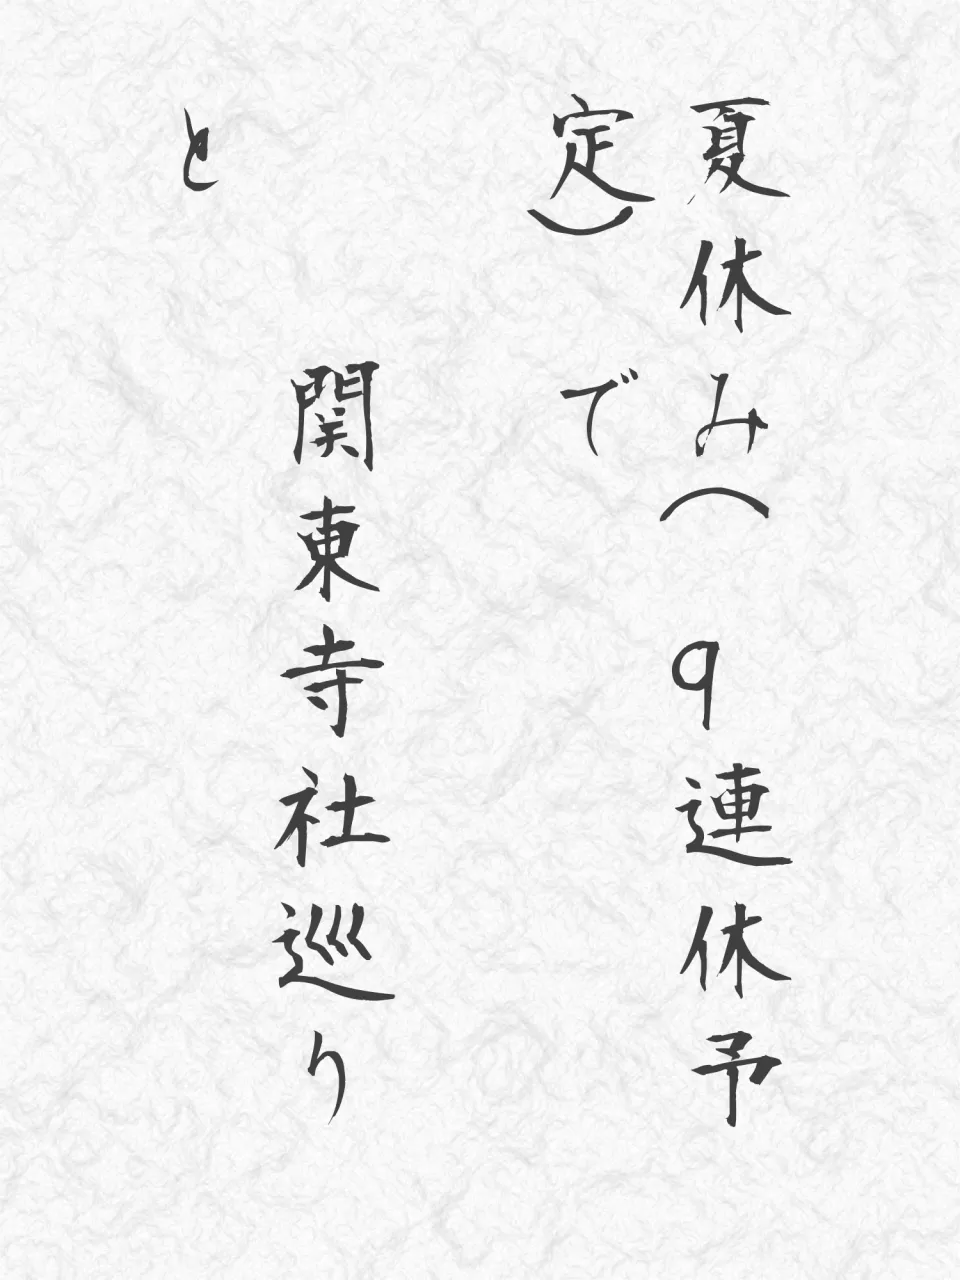 夏休み(9連休予
定)で
関東寺社巡り
と